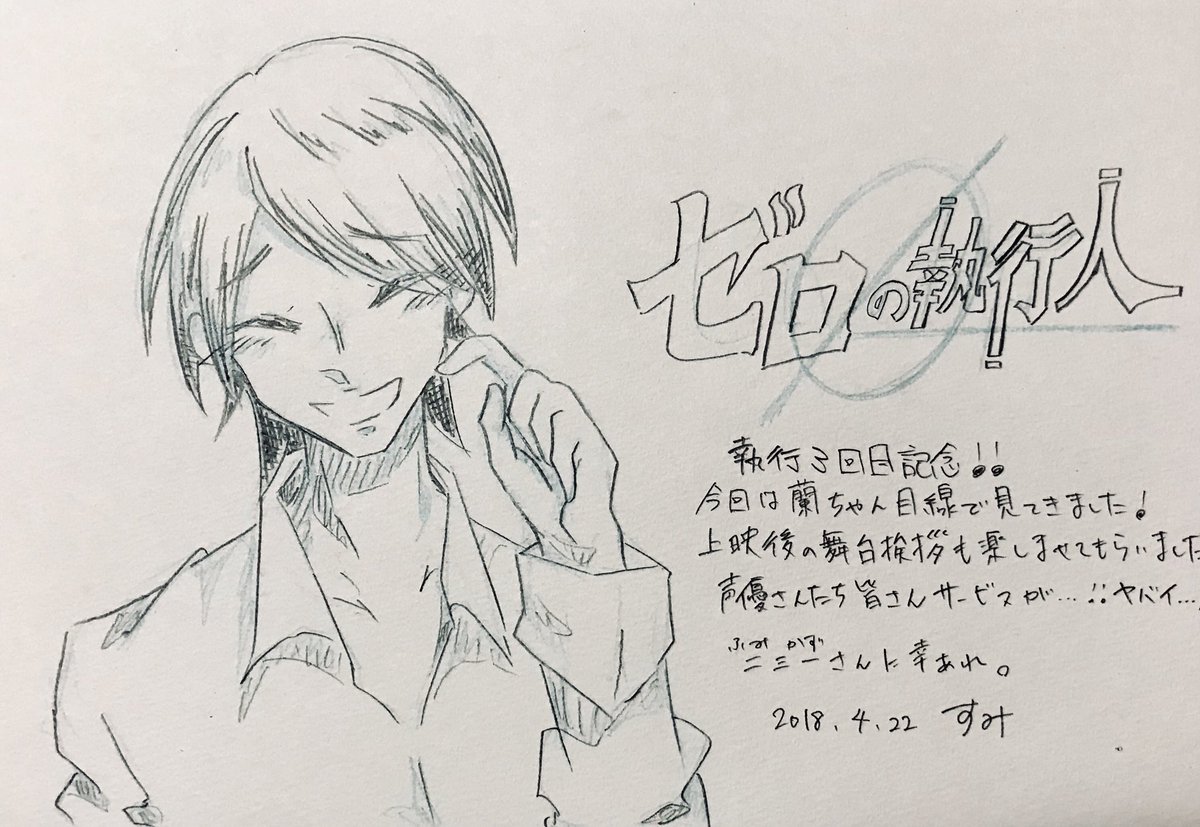 ゼロの執行人
執行3回目記念!!
今回は蘭ちゃん目線で見てきました!
上映後の舞台挨拶も楽しませてもらいました
声優さんたち皆さんサービスが…!!ヤバイ…
ふみ かず
二三一さんに幸あれ。
2018.4.22 すみ